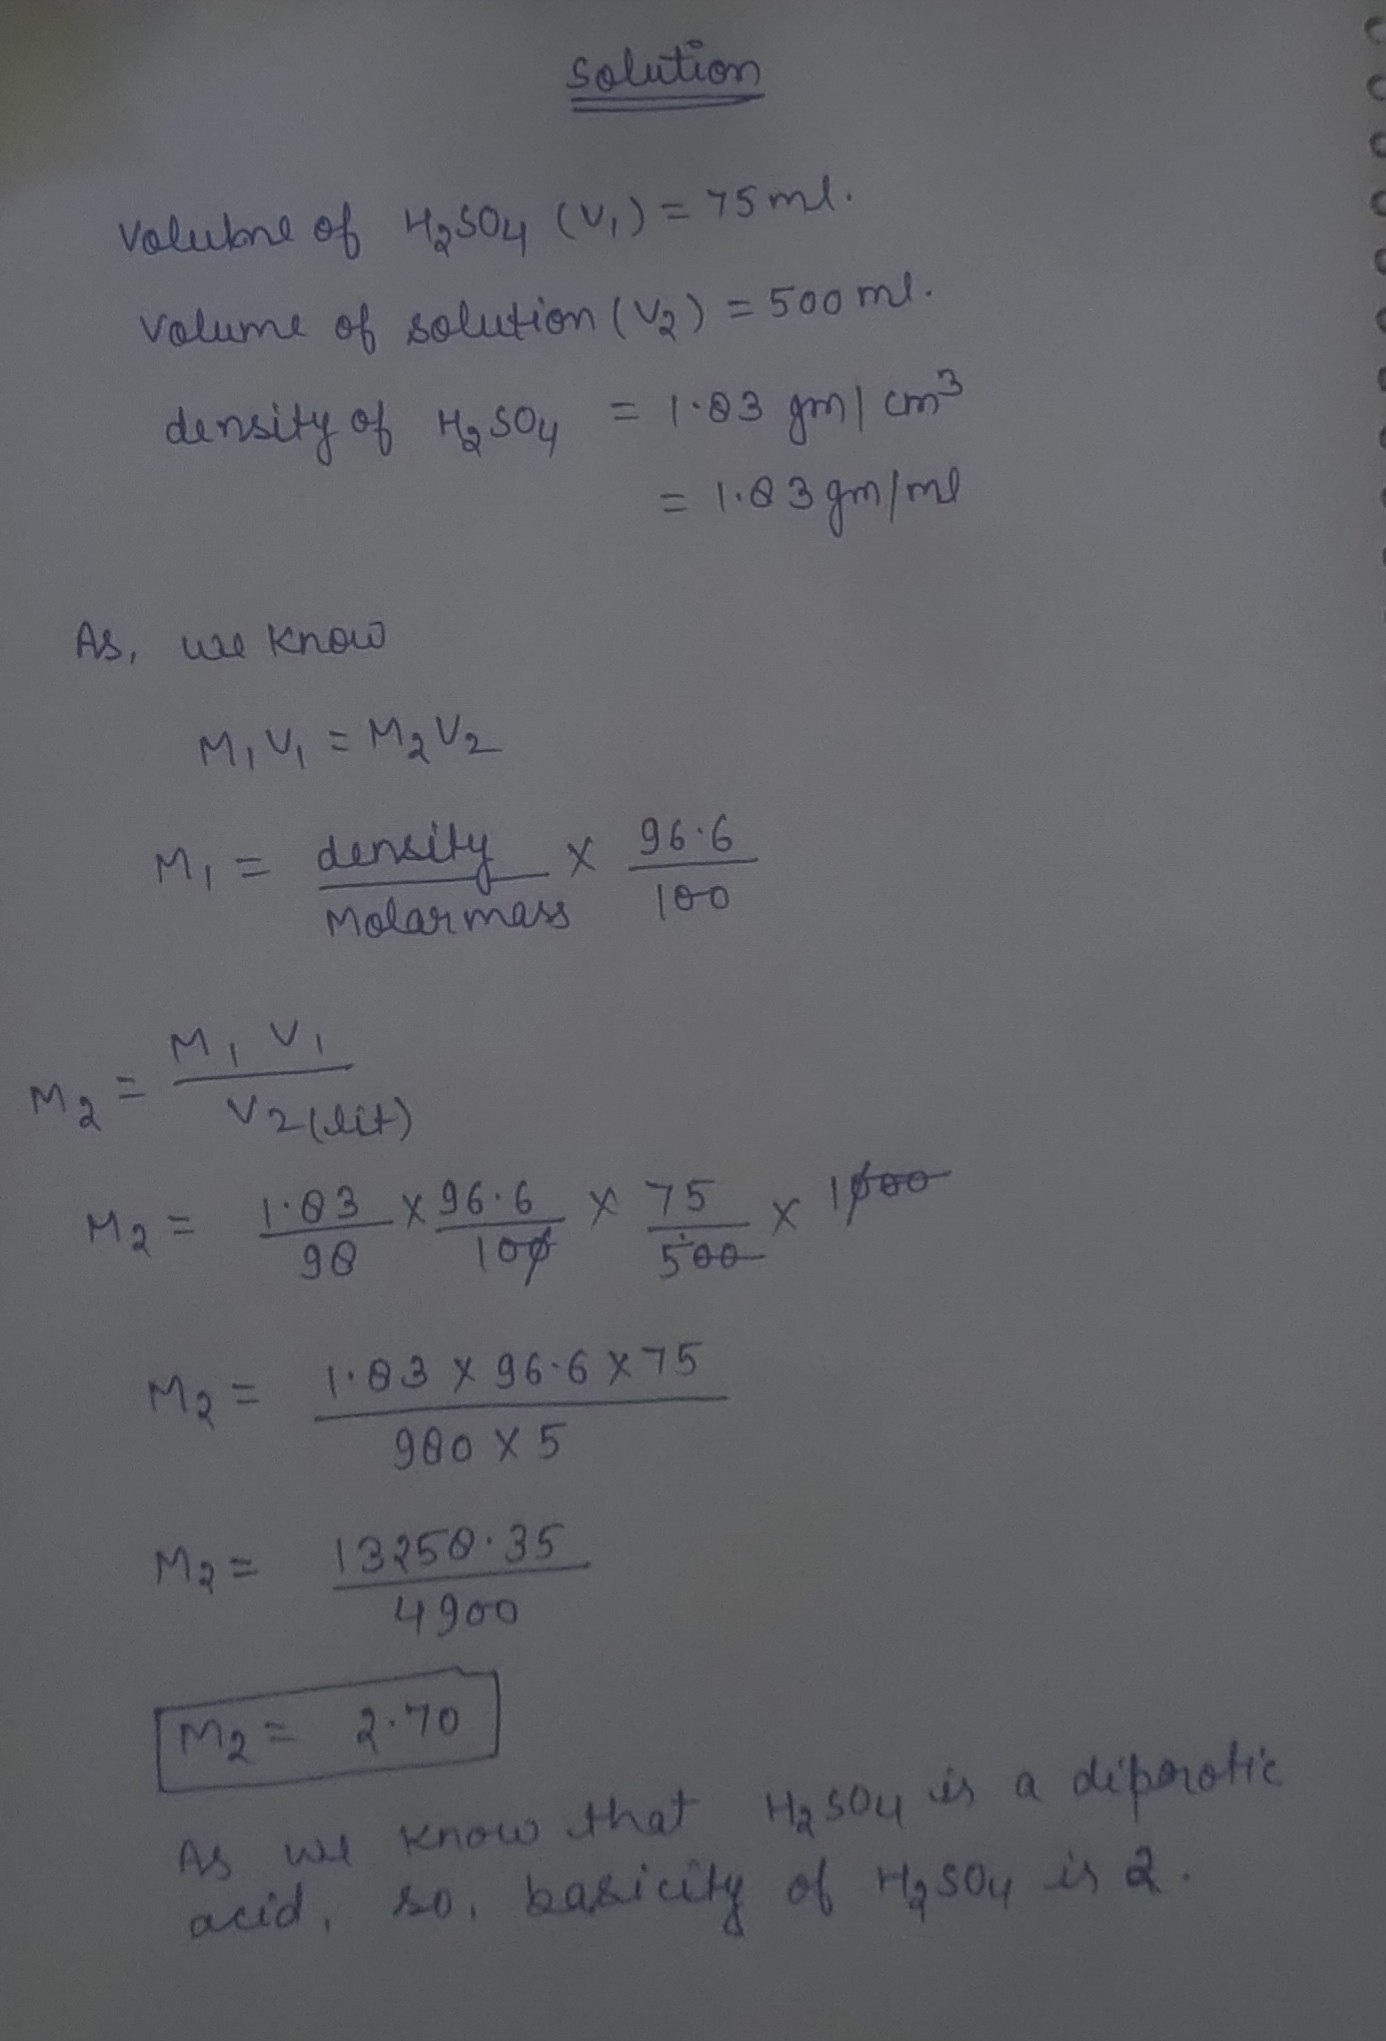 Solution
Volubne of H₂SO₄ (V₁) = 75 ml.
Volume of solution (V₂) = 500 ml.
density of H₂SO₄ = 1.83 gm/cm³
= 1.83 gm/ml
As, we know
M₁V₁ = M₂V₂
M₁ = density / Molarmass × 96.6 / 100
M₂ = M₁ V₁ / V₂(lit)
M₂ = 1.83 / 98 × 96.6 / 100 × 75 / 500 × 1000
M₂ = 1.83 × 96.6 × 75 / 980 × 5
M₂ = 13258.35 / 4900
M₂ = 2.70
As we know that H₂SO₄ is a diporotic
acid, so, basicity of H₂SO₄ is 2.